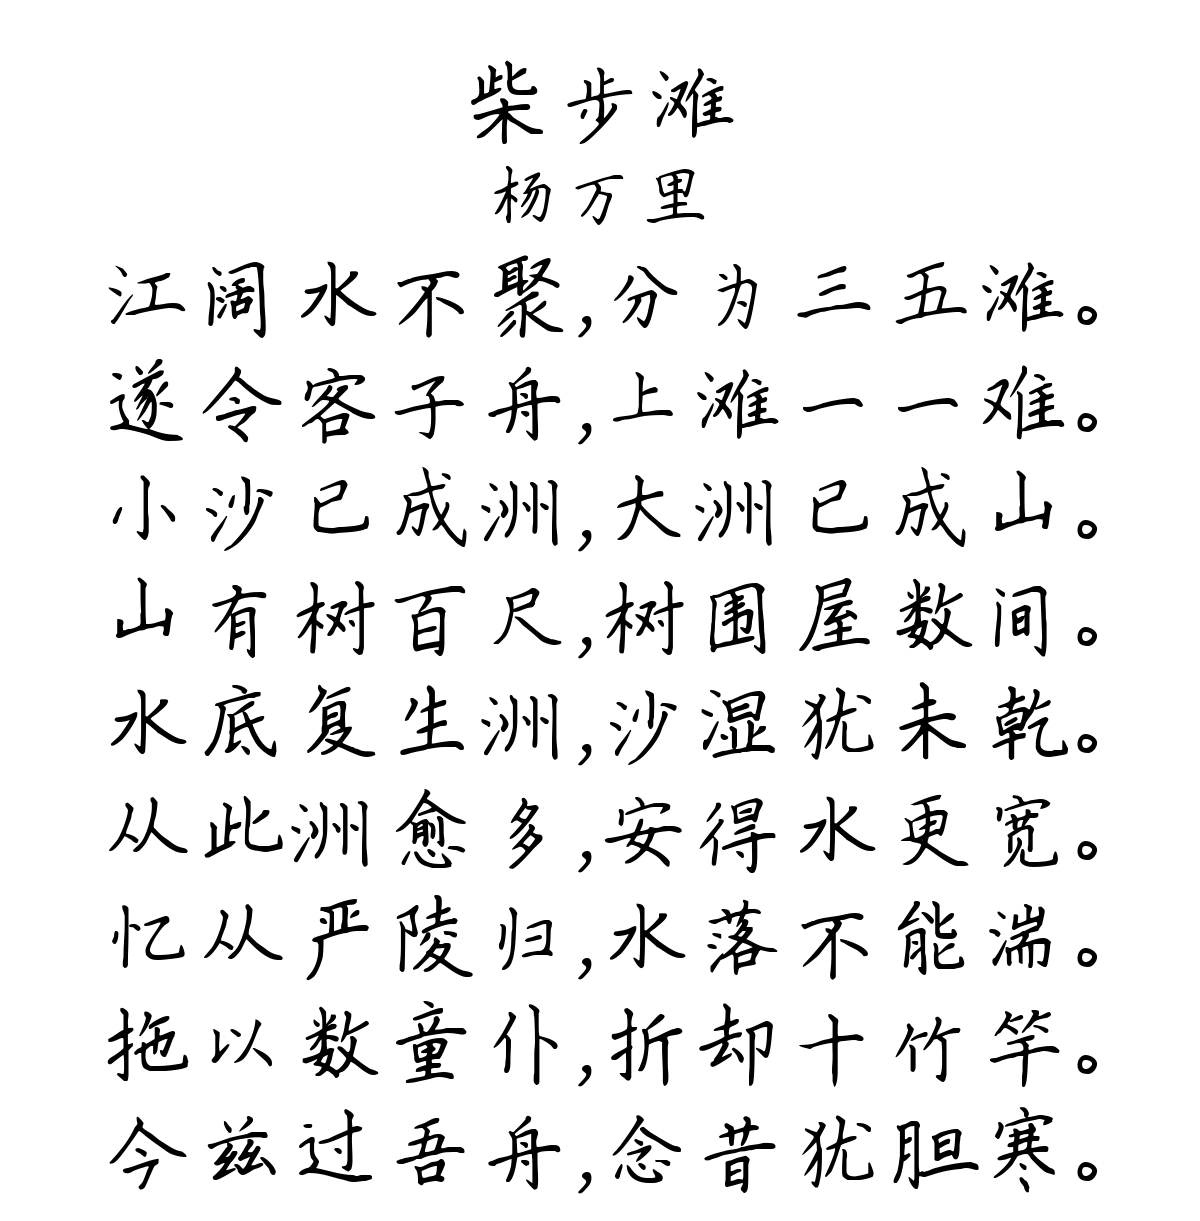 柴步滩
杨万里
江阔水不聚,分为三五滩。
遂令客子舟,上滩一一难。
小沙已成洲,大洲已成山。
山有树百尺,树围屋数间。
水底复生洲,沙湿犹未乾。
从此洲愈多,安得水更宽。
忆从严陵归,水落不能湍。
拖以数童仆,折却十竹竿。
今兹过吾舟,念昔犹胆寒。